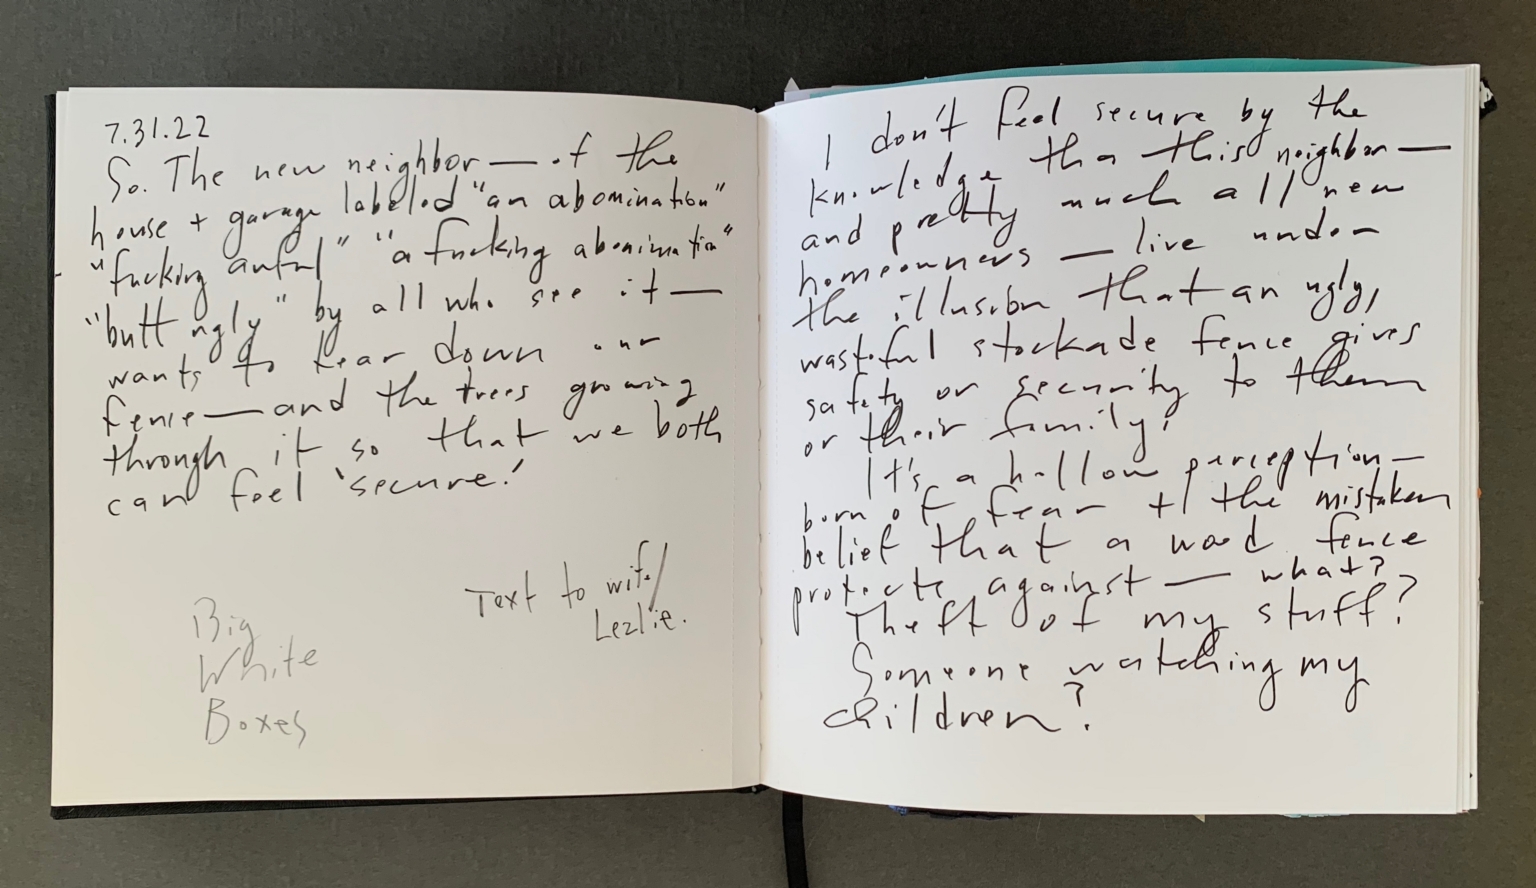 7.31.22
So. The new neighbor — of the
house + garage labeled "an abomination"
"fucking awful" "a fucking abomination"
"butt ugly" by all who see it —
wants to tear down our
fence — and the trees growing
through it so that we both
can feel 'secure.'
Text to wife/
Lezlie.
Big
White
Boxes
I don't feel secure by the
knowledge tha this neighbor —
and pretty much all new
homeowners — live under
the illusion that an ugly,
wasteful stockade fence gives
safety or security to them
or their family.
It's a hollow perception —
born of fear + the mistaken
belief that a wood fence
protects against — what?
Theft of my stuff?
Someone watching my
children?